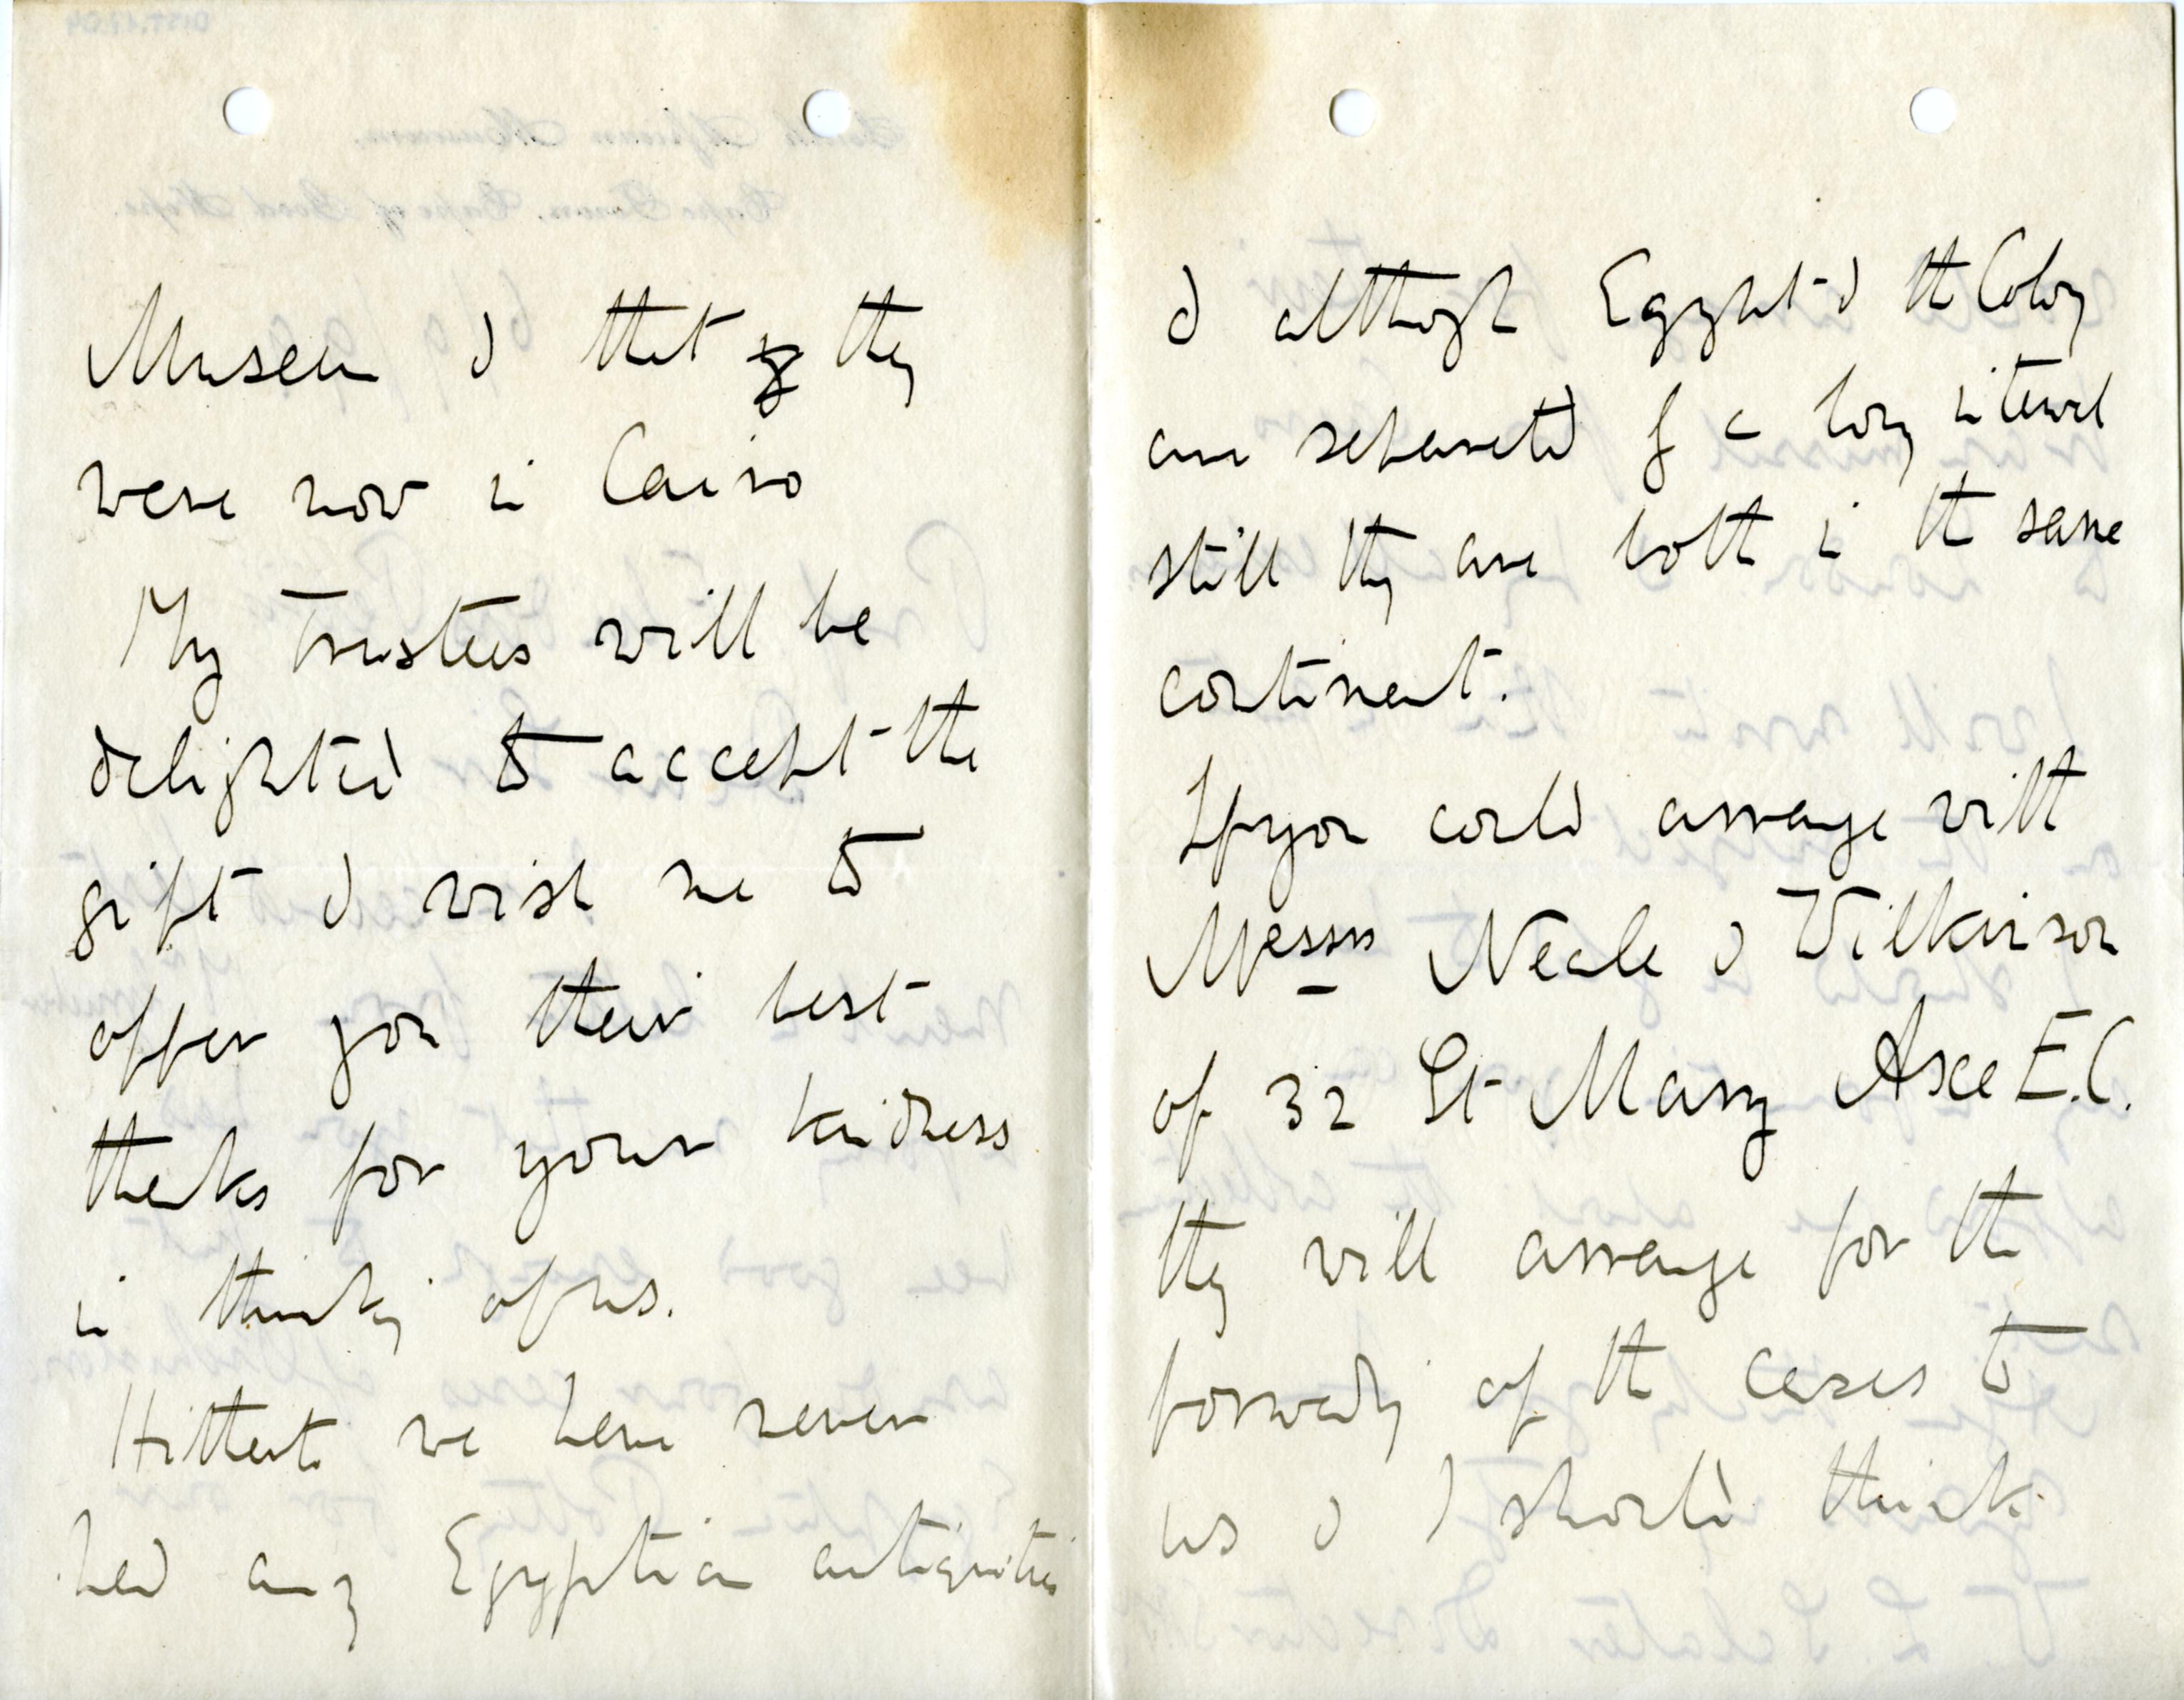 Museum & that if they
were now in Cairo
My Trustees will be
delighted to accept the
gift & wish me to
offer you their best
thanks for your kindness
in thinking of us.
Hitherto we have never
had any Egyptian antiquities
& although Egypt & the Colony
are separated by a long interval
still they are both in the same
continent.
If you could arrange with
Messrs Neale & Wilkinson
of 32 St Mary Axe E.C.
they will arrange for the
forwarding of the cases to
us & I should think